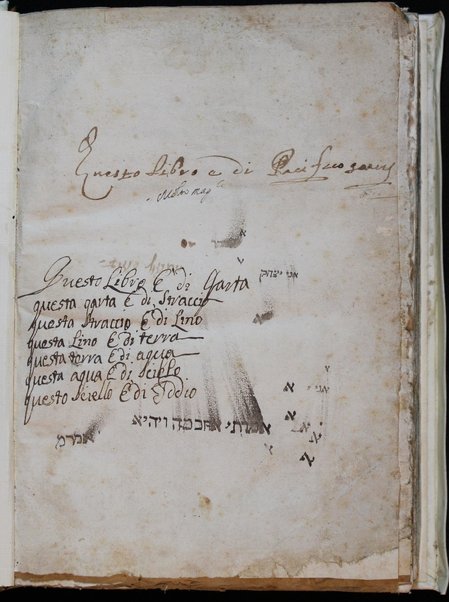 Questo Libro e di Pacifico
א
אני יצחק
Questo Libro E di Carta
questa carta E di Straccio
questa Straccio E di Lino
questa Lino E di terra
questa terra E di aqua
questa aqua E di Scielo
questo Sciello E di Iddio
אני
א
א
א
אמרתי אחכמה והיא
א
א